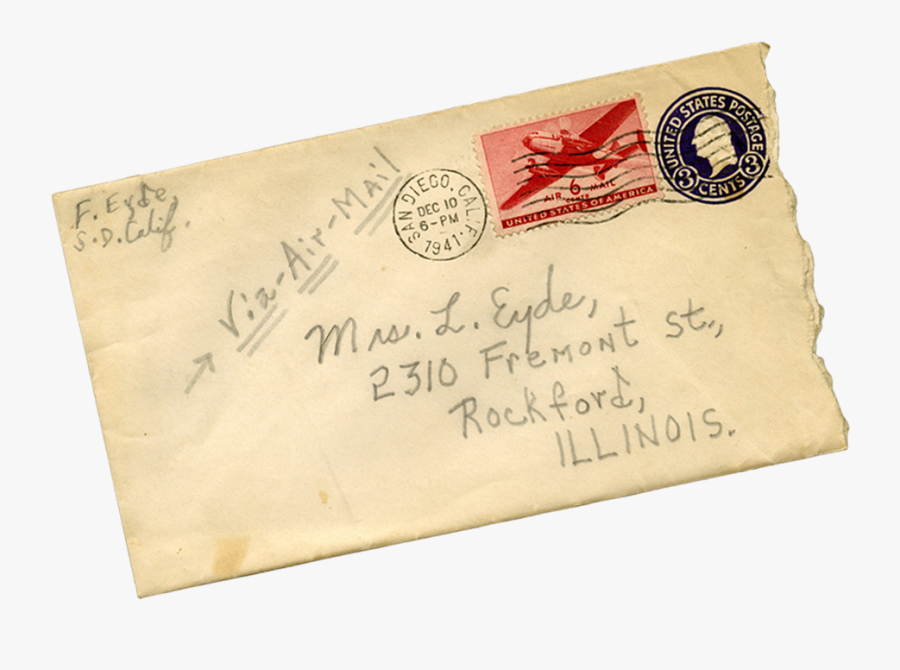 F. Eyde,
S.D. Calif.
Via-Air-Mail
SAN DIEGO, CALIF.
DEC 10
6-PM
1941
6
AIR MAIL
CENTS
UNITED STATES OF AMERICA
UNITED STATES POSTAGE
3 CENTS 3
Mrs. L. Eyde,
2310 Fremont St.,
Rockford,
ILLINOIS.